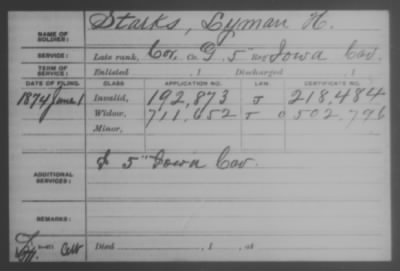 NAME OF SOLDIER: Starks, Lyman H.
SERVICE: Late rank, Cor, Co. G. 5 Reg Iowa Cav.
TERM OF SERVICE: Enlisted , 1 Discharged , 1
DATE OF FILING. CLASS. APPLICATION NO. LAW. CERTIFICATE NO.
1874 June 1 Invalid, 192,873 J 218,484
Widow, 711,652 J 0 502,796
Minor,
ADDITIONAL SERVICES: J 5" Iowa Cav.
REMARKS:
Died , 1 , at